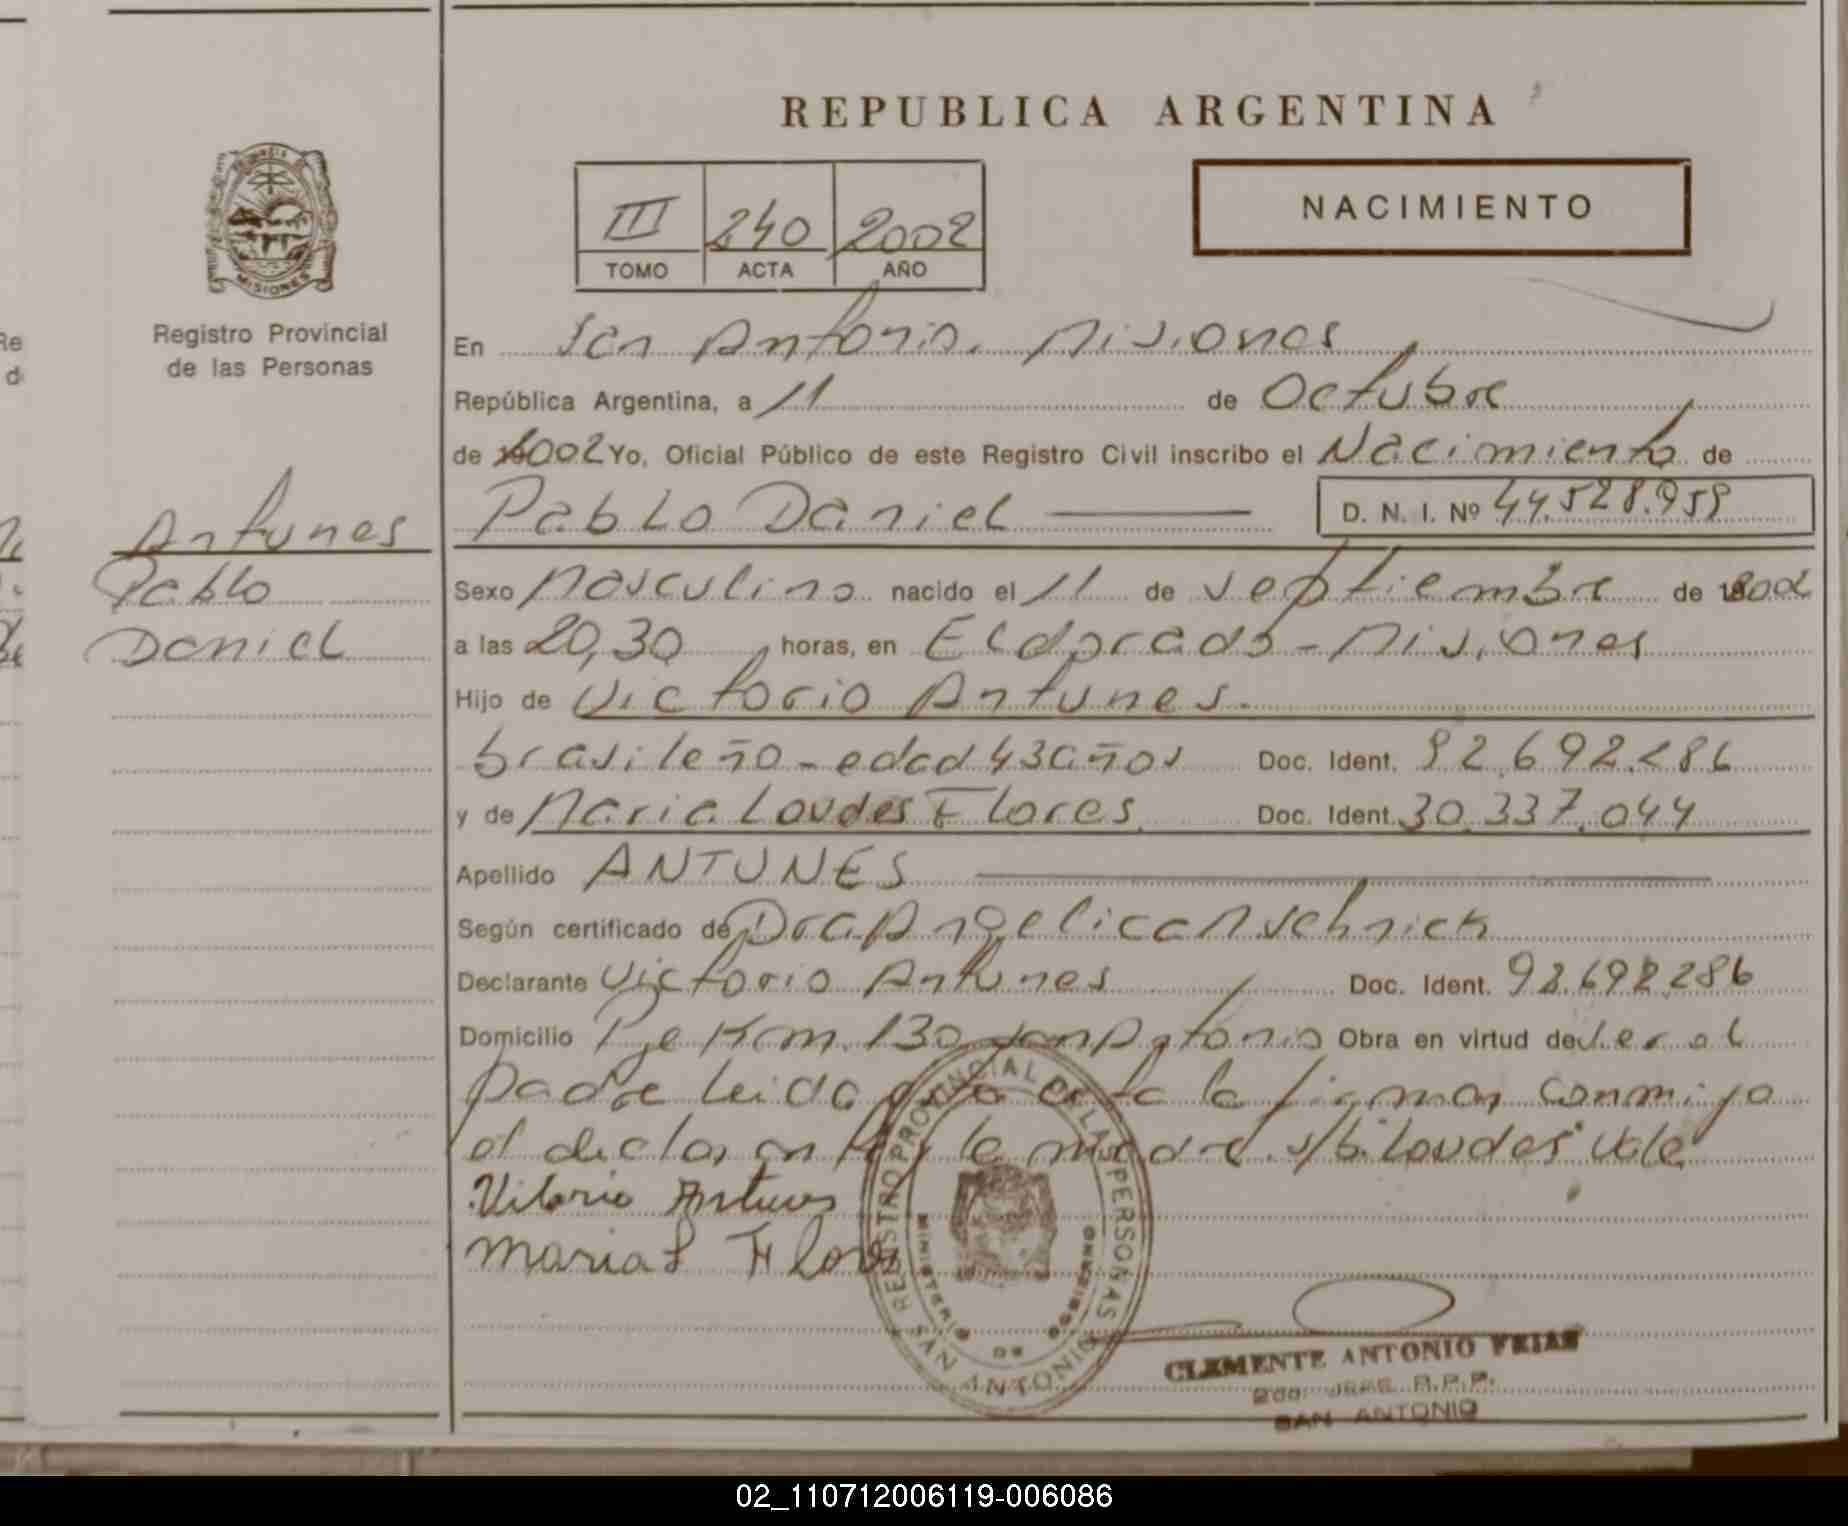 REPUBLICA ARGENTINA
PROVINCIA DE
MISIONES
Registro Provincial
de las Personas
III 240 2002
TOMO ACTA AÑO
NACIMIENTO
En San Antonio. Misiones
República Argentina, a 11 de Octubre
de 2002 Yo, Oficial Público de este Registro Civil inscribo el Nacimiento de
Pablo Daniel D. N. I. Nº 44.528.959
Antunes
Pablo
Daniel
Sexo Masculino nacido el 11 de septiembre de 2002
a las 20,30 horas, en Eldorado - Misiones
Hijo de Victorio Antunes.
brasileño - edad 43 años Doc. Ident. 92.692.286
y de Maria Loudes Flores Doc. Ident. 30.337.044
Apellido ANTUNES
Según certificado de Dra. Angelica
Declarante Victorio Antunes Doc. Ident. 92.692.286
Domicilio Pje Km. 130 San Antonio Obra en virtud de ser el
padre leida esta la firman conmigo
el declarante y la madre s/b "Loudes" Vale
Vitorio Antunes
Maria L Flores
REGISTRO PROVINCIAL DE LAS PERSONAS
MINISTERIO DE GOBIERNO
SAN ANTONIO
CLEMENTE ANTONIO FRIAS
2do. JEFE R.P.P.
SAN ANTONIO
02_110712006119-006086